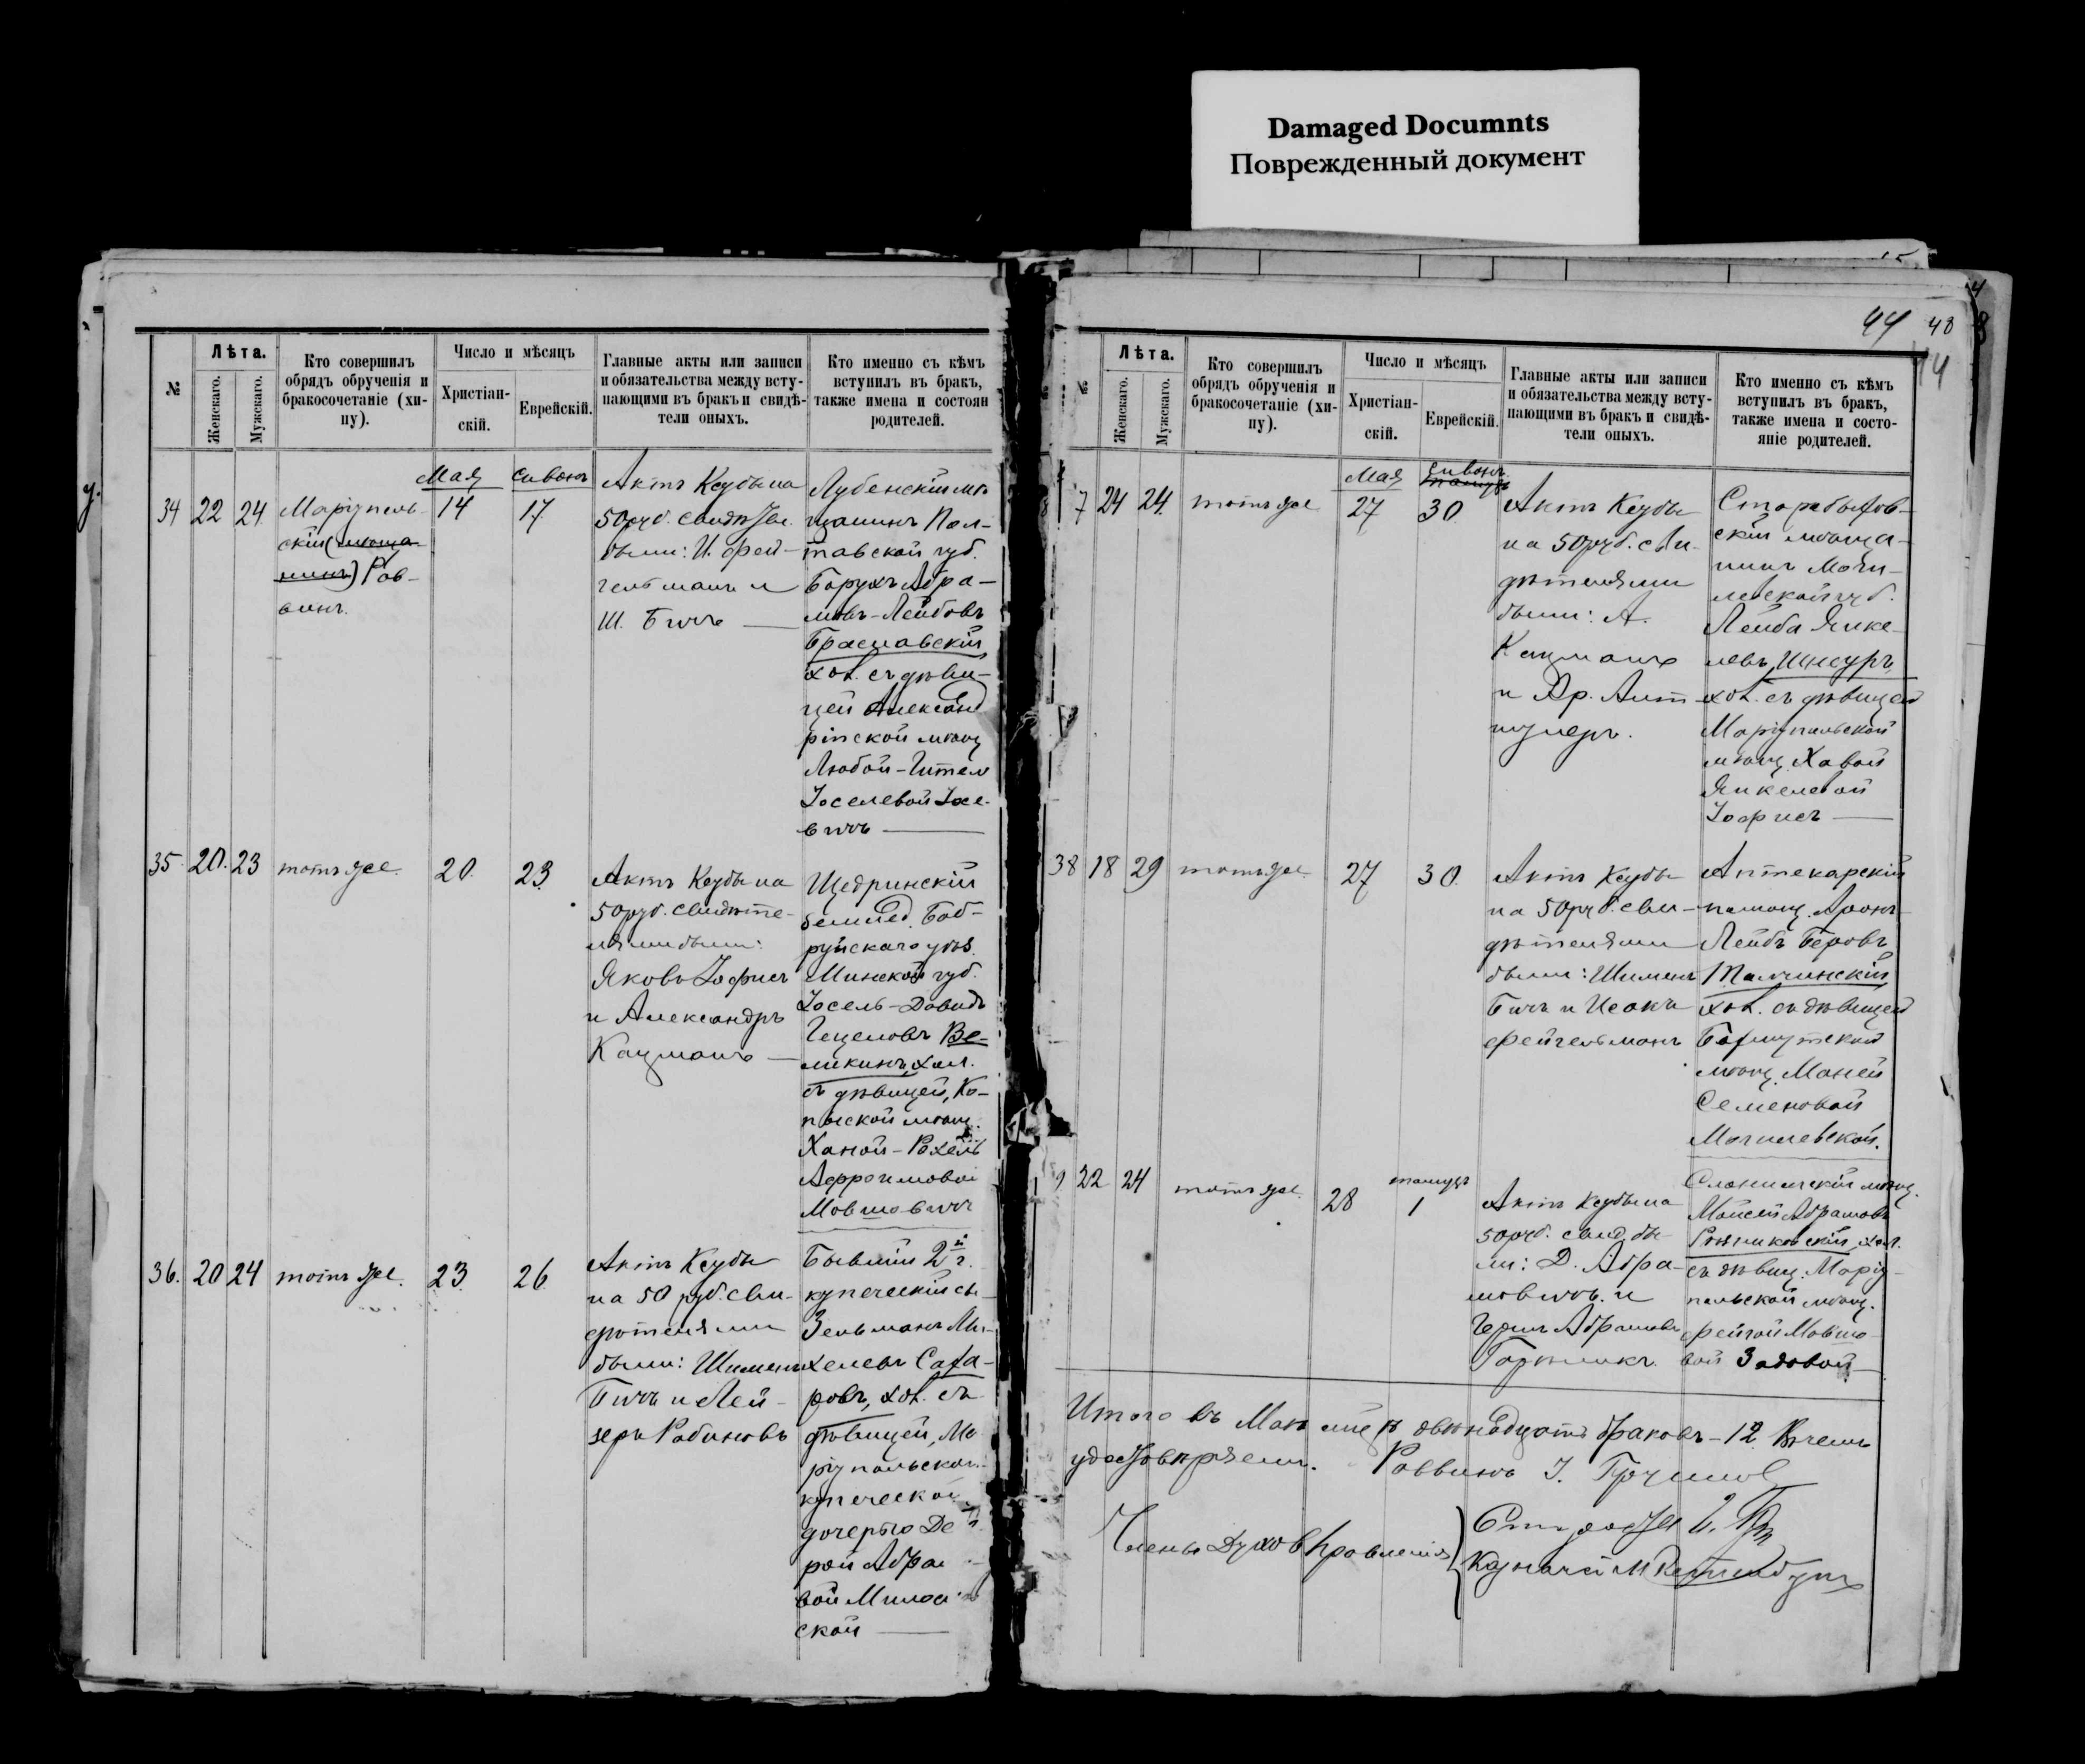 Damaged Documnts
Поврежденный документ
44 48
№
Лѣта.
Женскаго.
Мужскаго.
Кто совершилъ
обрядъ обрученія и
бракосочетаніе (хи-
пу).
Число и мѣсяцъ
Христіан-
скій.
Еврейскій.
Главные акты или записи
и обязательства между всту-
пающими въ бракъ и свидѣ-
тели оныхъ.
Кто именно съ кѣмъ
вступилъ въ бракъ,
также имена и состоян
родителей.
34
22
24
Маріуполь-
скій (мѣща-
нинъ) Рав-
винъ.
Мая
14
Сивонъ
17
Актъ Ксубы на
50 руб. свидѣте.
были: И. Фей-
гельманъ и
Ш. Бичъ
Лубенскій мѣ-
щанинъ Пол-
тавской губ.
Борухъ Абра-
мовъ-Лейбовъ
Браславскій
хол. съ дѣви-
цей Александ
рійской мѣщ
Любой-Гител
Іоселевой Іосе-
вичъ
35
20
23
тотъ же
20
23
Актъ Ксубы на
50 руб. свидѣте-
лями были:
Яковъ Іофисъ
и Александръ
Кацманъ
Щедринскій
землед. Боб-
руйскаго уѣз.
Минской губ.
Іосель-Довидъ
Гецеловъ Ве-
ликинъ, хол.
съ дѣвицей, Ко-
пыской мѣщ.
Ханой-Рохель
Аффроимовой
Мовшовичъ
36.
20
24
тотъ же.
23
26
Актъ Ксубы
на 50 руб. сви-
дѣтелями
были: Шименъ
Бичъ и Лей-
зеръ Рабиновъ
Бывшій 2й г.
купеческій сы
Зельманъ Ми-
хелевъ Сата-
ровъ, хол. съ
дѣвицей, Ма
ріупольской
купеческой
дочерью Де
рой Абра
вой Милос
ской
№
Лѣта.
Женскаго.
Мужскаго.
Кто совершилъ
обрядъ обрученія и
бракосочетаніе (хи-
пу).
Число и мѣсяцъ
Христіан-
скій.
Еврейскій.
Главные акты или записи
и обязательства между всту-
пающими въ бракъ и свидѣ-
тели оныхъ.
Кто именно съ кѣмъ
вступилъ въ бракъ,
также имена и состо-
яніе родителей.
7
24
24
тотъ же
Мая
27
Сивонъ
30
Актъ Ксубы
на 50 руб. сви-
дѣтелями
были: А.
Кацманъ
и Ар. Альт-
шулеръ.
Старобыхов-
скій мѣща-
нинъ Моги-
левской губ.
Лейба Янке-
левъ Шнсуръ,
хол. съ дѣвицей
Маріупольской
мѣщ. Хавой
Янкелевой
Іофисъ
38
18
29
тотъ же
27
30
Актъ Ксубы
на 50 руб. сви-
дѣтелями
были: Шименъ
Бичъ и Исакъ
Фейгельманъ
Аптекарскій
помощ. Аронъ-
Лейбъ Беровъ
Талчинскій
хол. съ дѣвицей
Бахмутской
мѣщ. Маней
Семеновой
Могилевской.
9
22
24
тотъ же
28
тамузъ
1
Актъ Ксубы на
50 руб. свид. бы-
ли: Д. Абра-
мовичъ и
Герцъ Абрамовъ
Слонимскій мѣщ.
Мойсей Абрамовъ
хол.
съ дѣвиц. Маріу-
польской мѣщ.
Фейгой Мовшо-
вой Задовой
Итого въ Маѣ мцѣ двѣнадцать браковъ-12. Въ чемъ
удостовѣряемъ. Раввинъ
Члены Духов. Правленія
Староста
Казначей